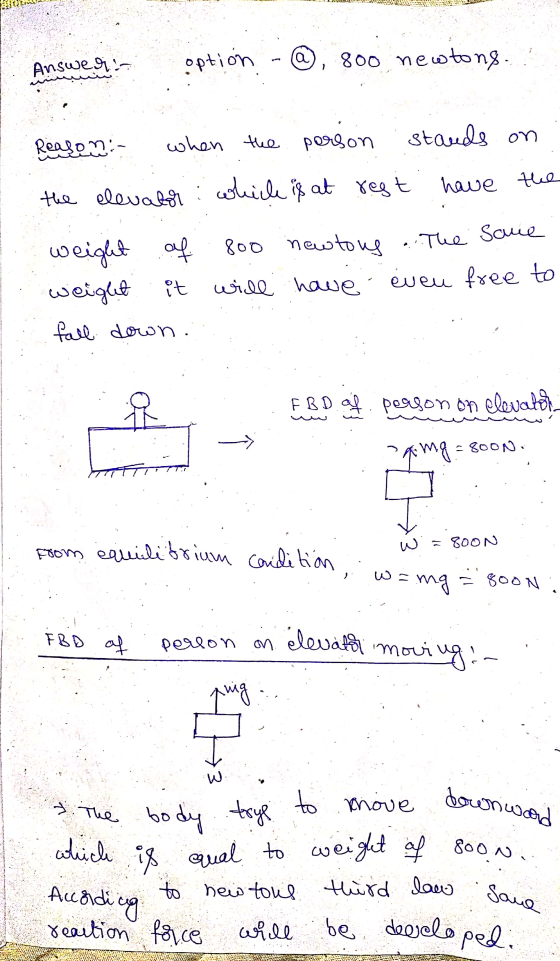 Answer:- option - ⓐ, 800 newtons.
Reason:- when the person stands on
the elevator which is at rest have the
weight of 800 newtons. The same
weight it will have even free to
fall down.
FBD of person on elevator
mg = 800N.
W = 800N
From equilibrium condition, W = mg = 800N.
FBD of person on elevator moving:-
mg
W
→ The body trys to move downward
which is equal to weight of 800N.
According to newtons third law same
reaction force will be developed.